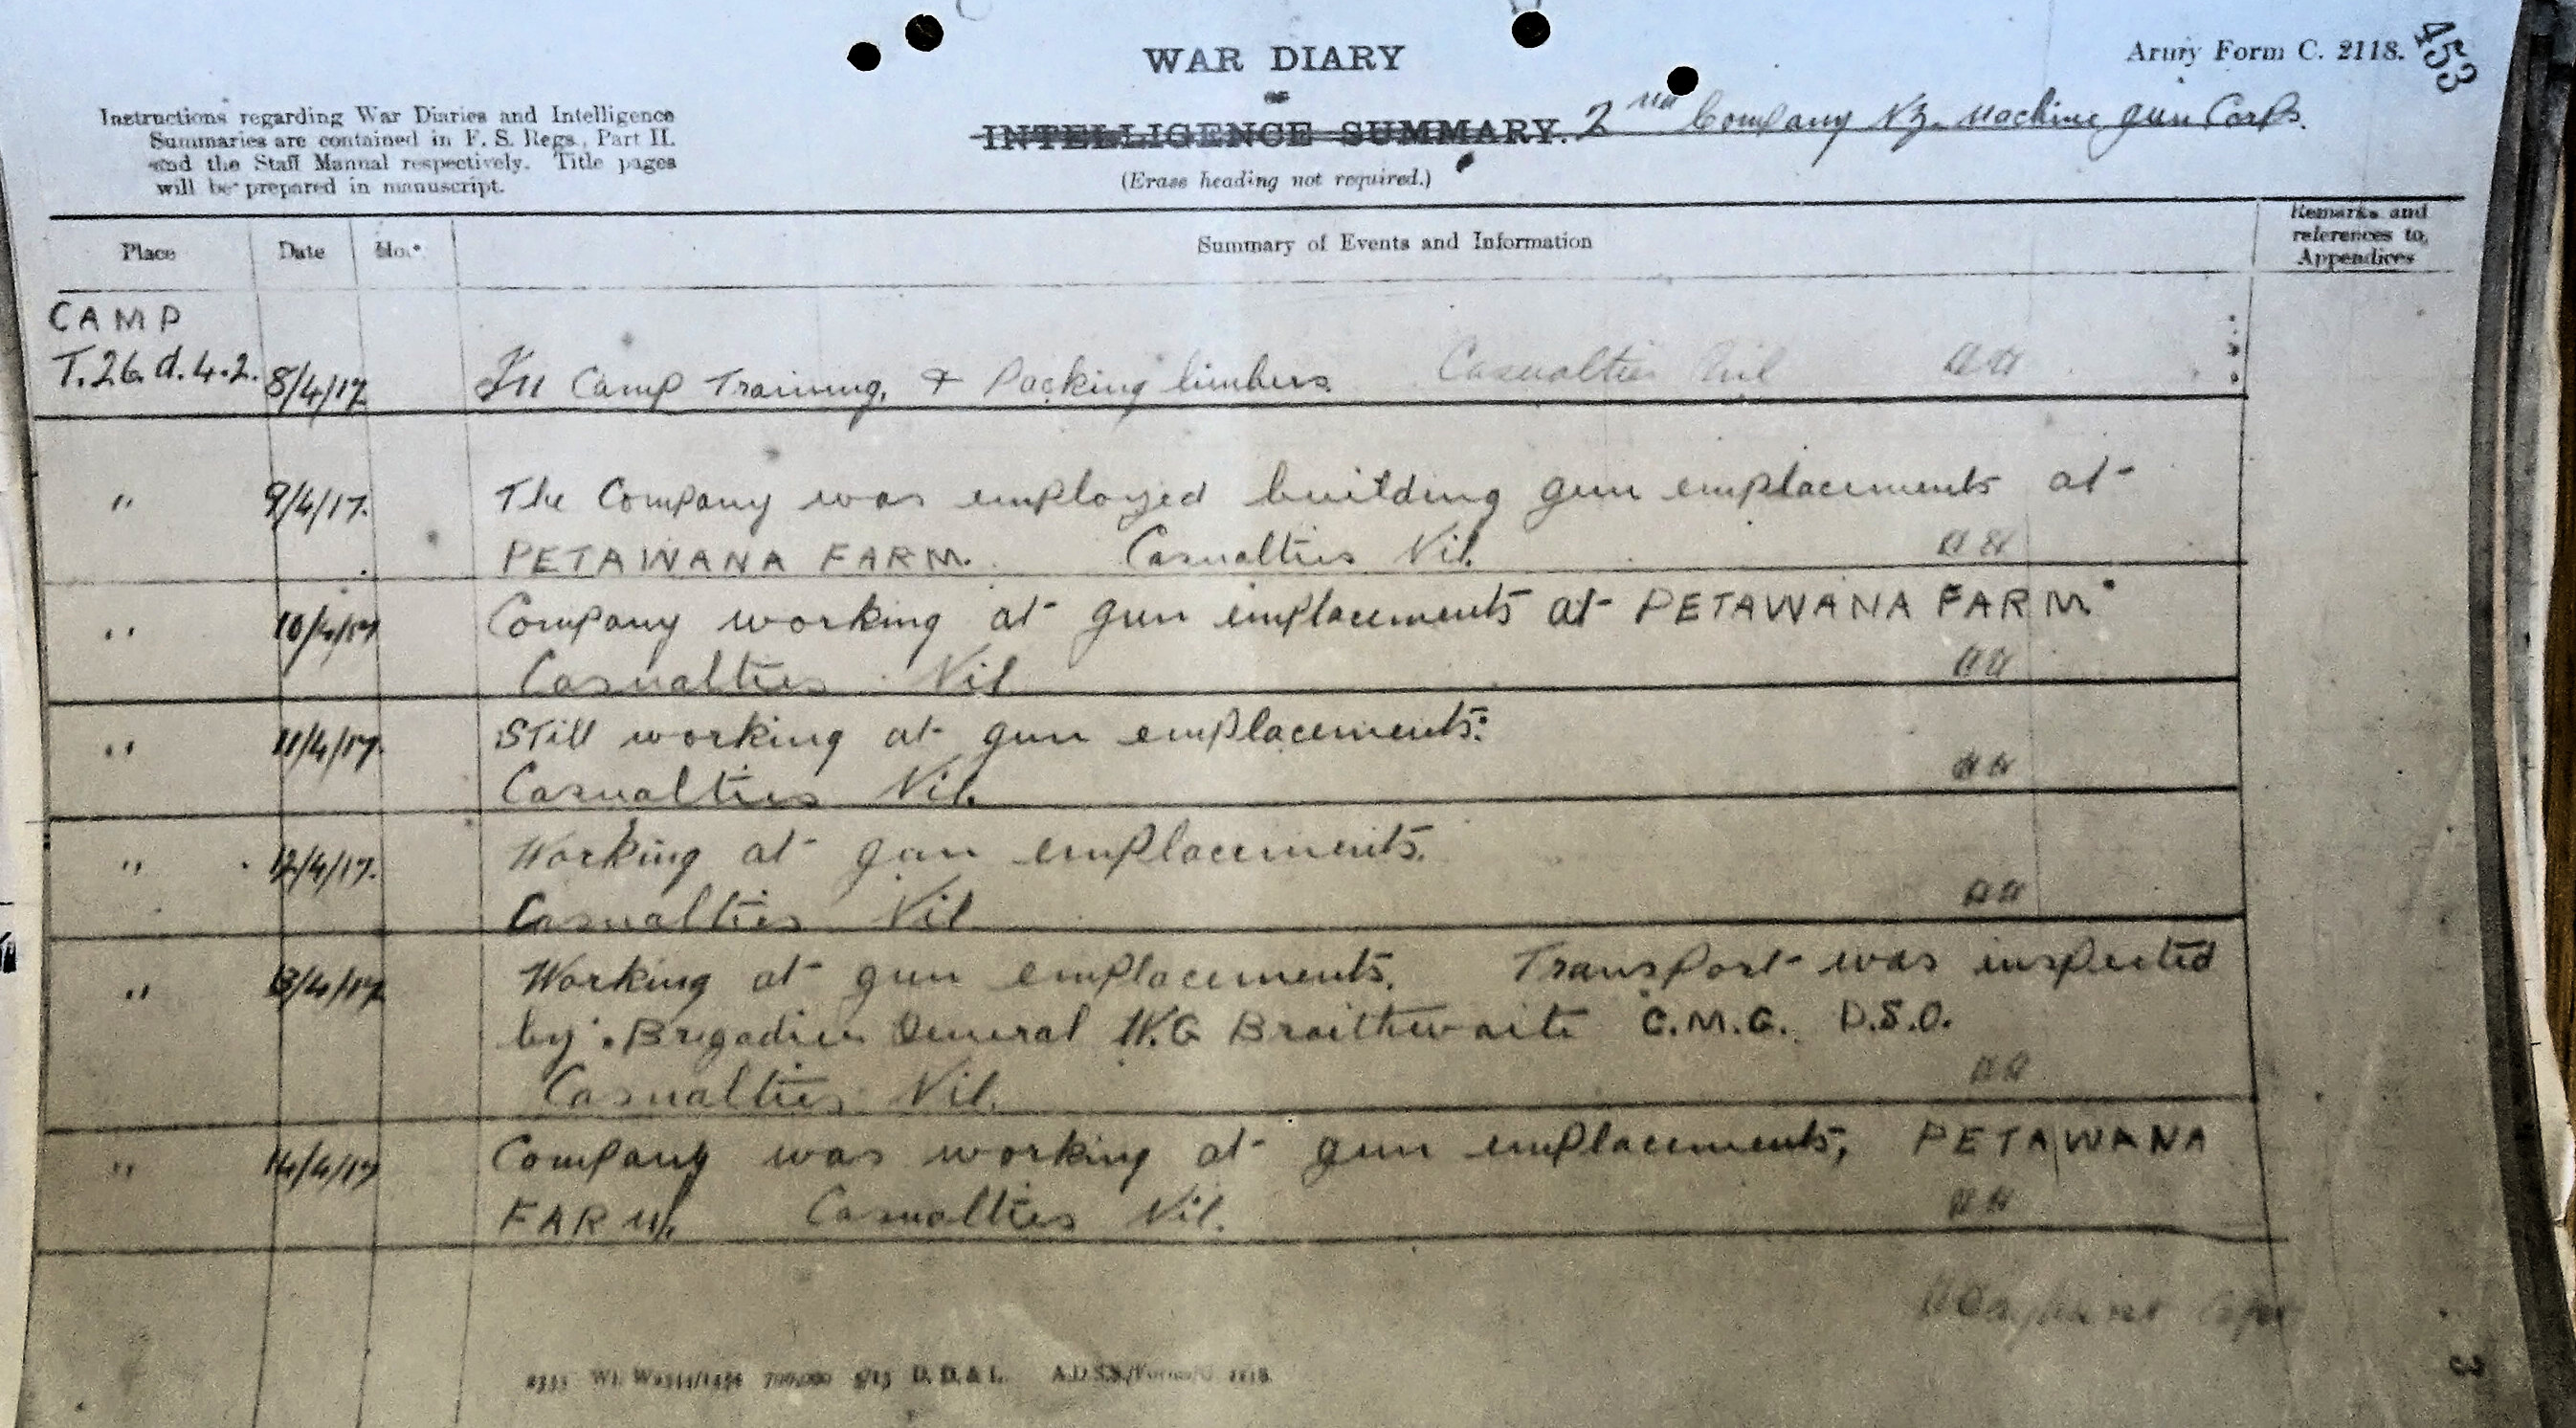 453
Army Form C. 2118.
WAR DIARY
or
INTELLIGENCE SUMMARY. 2nd Company NZ. Machine Gun Corps.
(Erase heading not required.)
Instructions regarding War Diaries and Intelligence
Summaries are contained in F. S. Regs., Part II.
and the Staff Manual respectively. Title pages
will be prepared in manuscript.
Place Date Summary of Events and Information Remarks and
references to
Appendices
CAMP
T.26.d.4.2. 8/4/17 In Camp Training, & Packing limbers. Casualties Nil
" 9/4/17. The Company was employed building gun emplacements at
PETAWANA FARM. Casualties Nil.
" 10/4/17 Company working at gun emplacements at PETAWANA FARM.
Casualties Nil
" 11/4/17. Still working at gun emplacements.
Casualties Nil.
" 12/4/17. Working at gun emplacements.
Casualties Nil
" 13/4/17 Working at gun emplacements. Transport was inspected
by Brigadier General W.G Braithwaite C.M.G. D.S.O.
Casualties Nil.
" 14/4/17 Company was working at gun emplacements, PETAWANA
FARM. Casualties Nil.
D. D. & L.